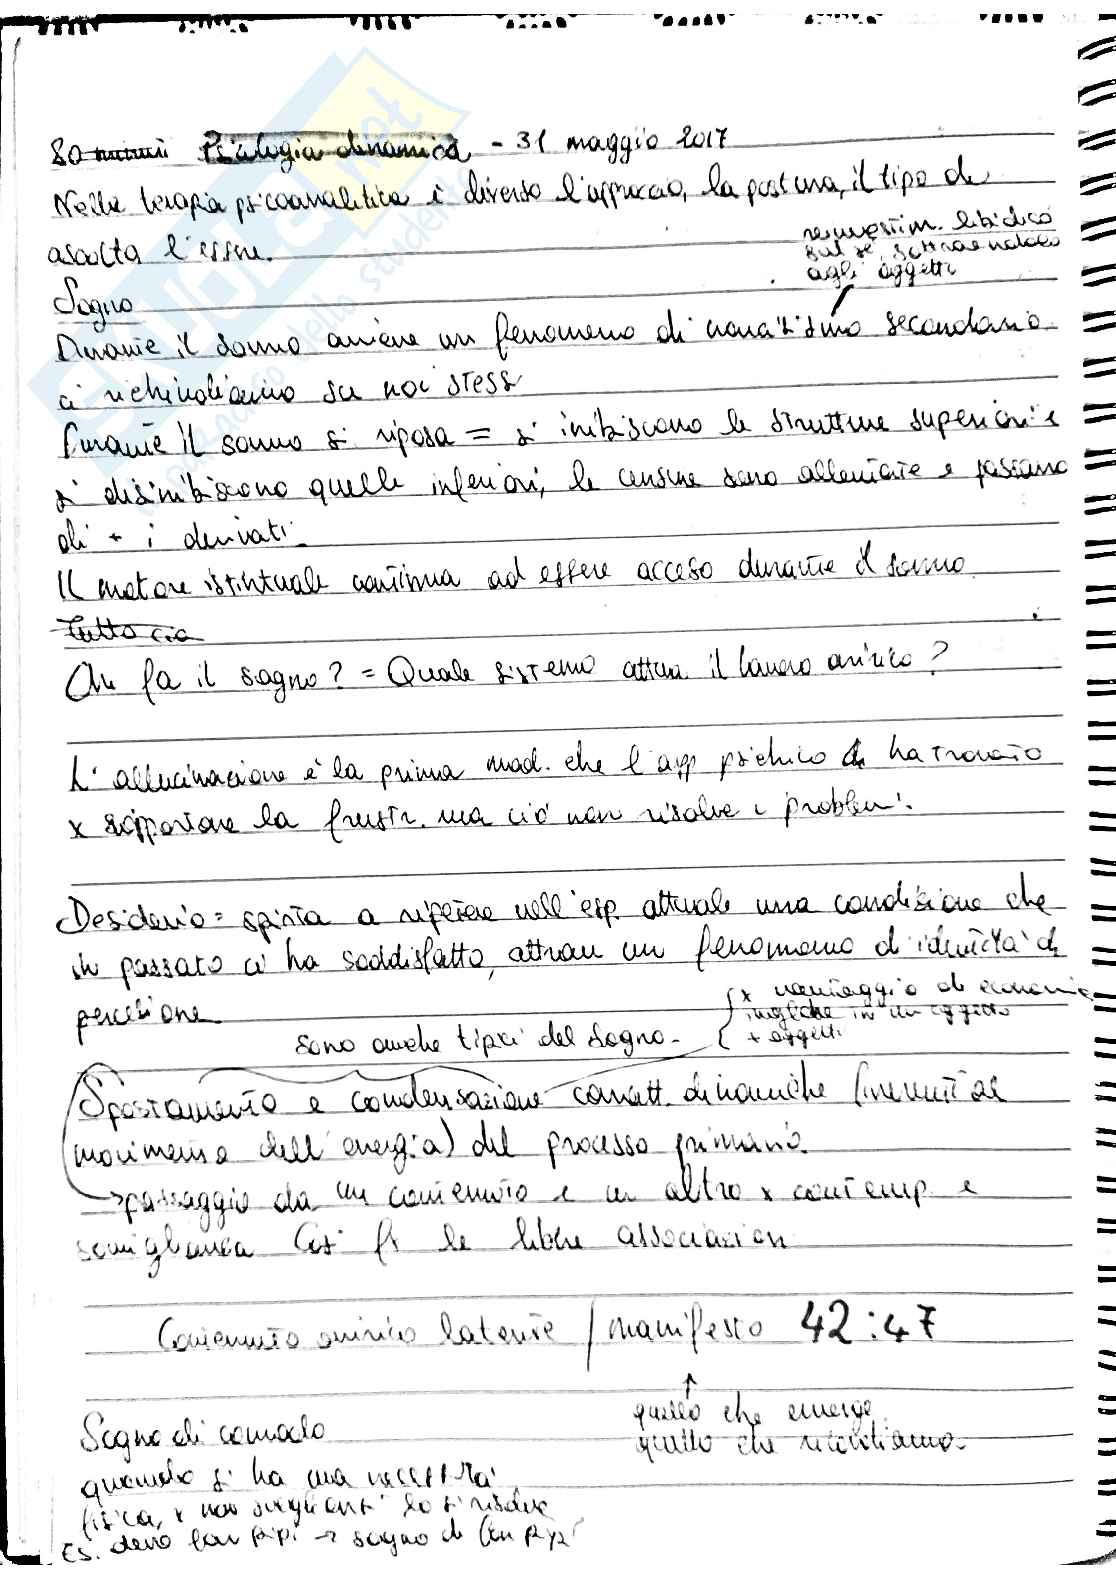 80 minuti Psicologia dinamica - 31 maggio 2017
Nella terapia psicoanalitica è diverso l'approccio, la postura, il tipo di
ascolto l'essere.
reinvestim. libidico
sul sé, sottraendolo
agli oggetti
Sogno
Durante il sonno avviene un fenomeno di narcisismo secondario
ci richiudiamo su noi stessi
Durante il sonno si riposa = si inibiscono le strutture superiori e
si disinibiscono quelle inferiori, le censure sono allentate e passano
di + i derivati.
Il motore istintuale continua ad essere acceso durante il sonno.
Tutto ciò
Chi fa il sogno? = Quale sistema attua il lavoro onirico?
L'allucinazione è la prima mod. che l'app psichico ha trovato
x sopportare la frustr. ma ciò non risolve i problemi.
Desiderio = spinta a ripetere nell'esp. attuale una condizione che
in passato ci ha soddisfatto, attrav un fenomeno di identità di
percezione
x vantaggio di economia
in un oggetto
+ oggetti
sono anche tipici del sogno.
Spostamento e condensazione caratt. dinamiche (inerenti al
movimento dell'energia) del processo primario.
→ passaggio da un contenuto e un altro x contemp. e
somiglianza Così fz le libere associazioni
Contenuto onirico latente / manifesto 42:47
↑
quello che emerge
quello che ricordiamo.
Sogno di comodo
quando si ha una necessità
fisica, x non svegliarsi lo si risolve
Es. devo far pipì → sogno di far pipì
SKUOLA.net